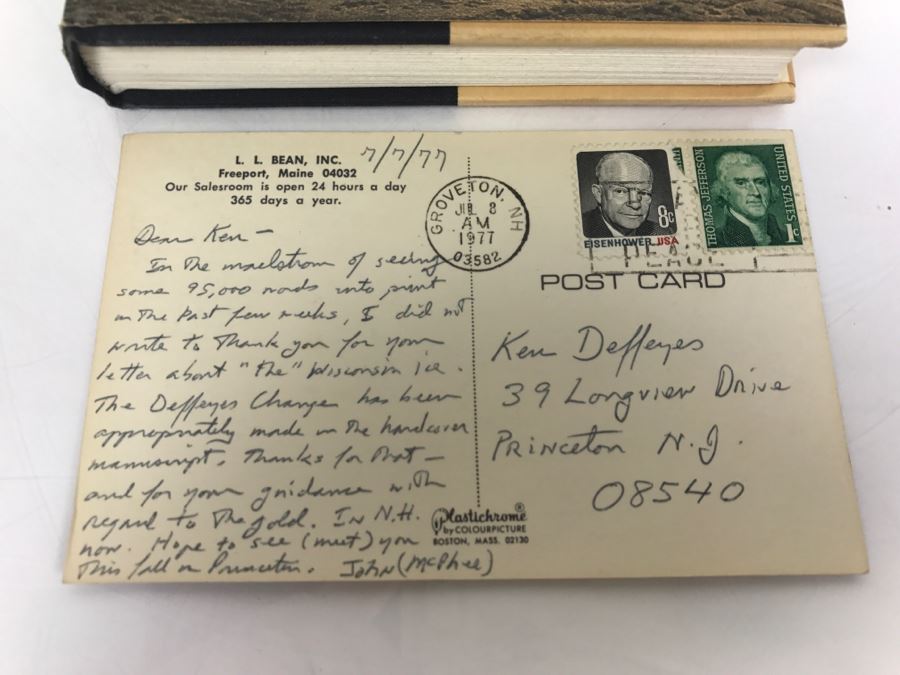 L. L. BEAN, INC.
Freeport, Maine 04032
Our Salesroom is open 24 hours a day
365 days a year.
7/7/77
Dear Ken —
In the maelstrom of seeing
some 95,000 words into print
in the past few weeks, I did not
write to thank you for your
letter about "the" Wisconsin ice.
The Deffeyes Change has been
appropriately made in the hardcover
manuscript. Thanks for that —
and for your guidance with
regard to the gold. In N.H.
now. Hope to see (meet) you
this fall in Princeton. John (McPhee)
GROVETON, NH
JUL 8
AM
1977
03582
EISENHOWER USA
8c
THOMAS JEFFERSON
UNITED STATES
1c
POST CARD
Ken Deffeyes
39 Longview Drive
Princeton N.J.
08540
Plastichrome®
by COLOURPICTURE
BOSTON, MASS. 02130